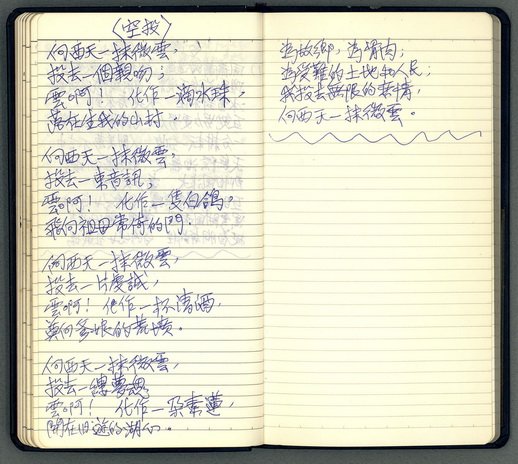 〈空投〉
向西天一抹微雲，
投去一個親吻；
雲啊！化作一滴水珠，
落在生我的山村。
向西天一抹微雲，
投去一束音訊；
雲啊！化作一隻白鴿。
飛向祖母常倚的門。
向西天一抹微雲，
投去一片虔誠，
雲啊！化作一杯清酒，
奠向爹娘的荒墳。
向西天一抹微雲，
投去一縷夢魂
雲啊！化作一朵素蓮，
開在旧遊的湖心。
為故鄉，為骨肉；
為受難的土地和人民；
我投去無限的悲情，
向西天一抹微雲。